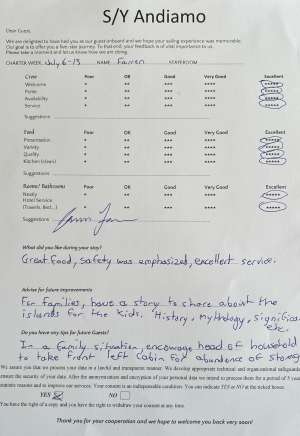 S/Y Andiamo
Dear Guest,
We are delighted to have had you as our guest and we hope your sailing experience was memorable.
Our goal is to offer you a five-star journey. To that end, your feedback is of vital importance to us.
Please take a moment and let us know how we are doing.
CHARTER WEEK July 6-13 NAME STATEROOM
Crew Poor OK Good Very Good Excellent
Welcome * ** *** **** *****
Polite * ** *** **** *****
Availability * ** *** **** *****
Service * ** *** **** *****
Suggestions
Food Poor OK Good Very Good Excellent
Presentation * ** *** **** *****
Variety * ** *** **** *****
Quality * ** *** **** *****
Kitchen (clean) * ** *** **** *****
Suggestions
Rooms/ Bathrooms Poor OK Good Very Good Excellent
Neatly * ** *** **** *****
Hotel Service
(Towels, Bed...) * ** *** **** *****
Suggestions
What did you like during your stay?
Great food, safety was emphasized, excellent service.
Advise for future improvements
For families, have a story to share about the
islands for the kids. History, mythology, significance
etc.
Do you have any tips for future Guests?
In a family situation, encourage head of household
to take front left cabin for abundance of storage
We assure you that we process your data in a lawful and transparent manner. We develop appropriate technical and organisational safeguards
ensure the security of your data. After the anonymization and encryption of your personal data we intend to process them for a period of 5 year
statistic reasons and to improve our services. Your consent is an indispensable condition. You can indicate YES or NO at the ticked boxes.
YES NO
You have the right of a copy and you have the right to withdraw your consent at any time.
Thank you for your cooperation and we hope to welcome you back very soon!